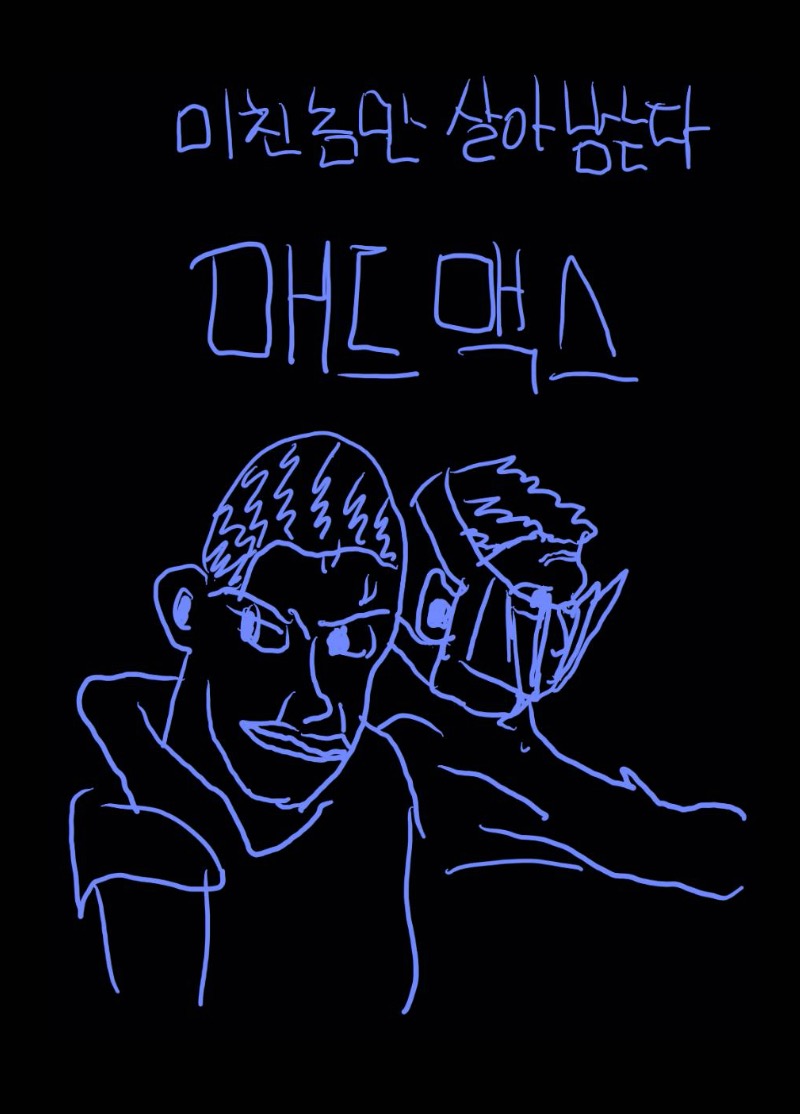 미친놈만 살아남는다
매드맥스